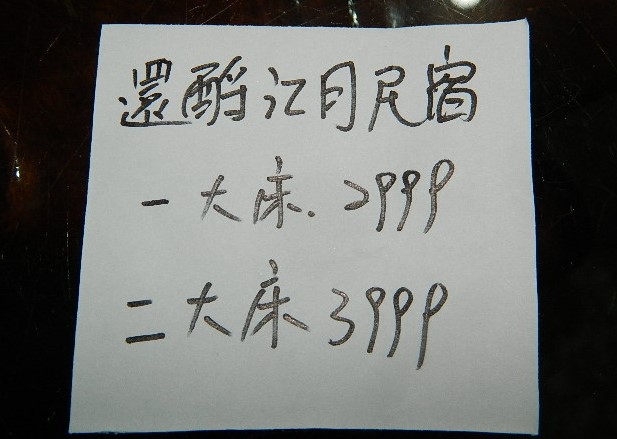 還酹江月民宿
一大床.2999
二大床3999